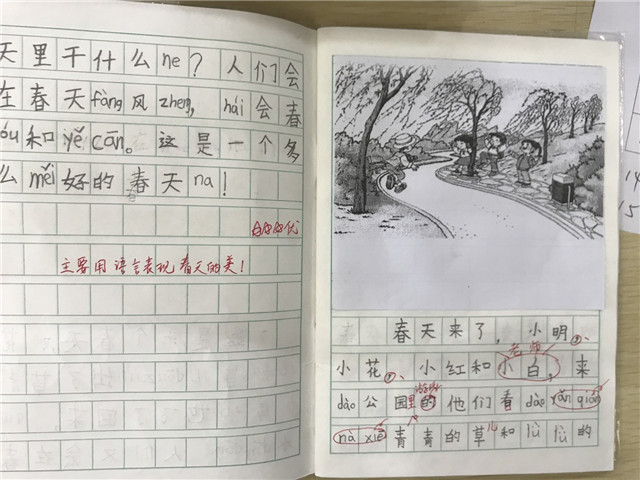 天里干什么ne？人们会
在春天fàng风zhen，hái会春
óu和yě cān。这是一个多
么měi好的春天na！
主要用语言表现春天的美！
春天来了，小明、
老师
小花、小红和小白，来
游玩
dào公园里的他们看dào yǎn qián
nà xiē青青的草儿和lǜ lǜ的
14
15